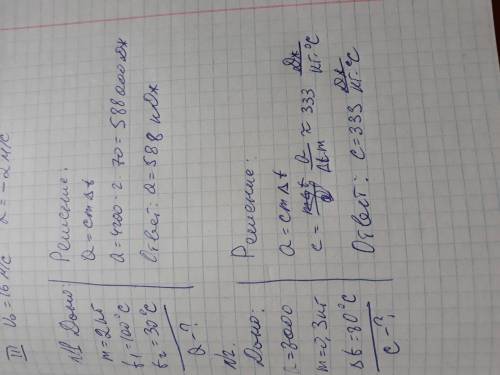 II V₀=16 м/с a=-2 м/с
№1 Дано:
m=2 кг
t₁=100°C
t₂=30°C
Q-?
Решение:
Q=cmΔt
Q=4200·2·70=588000 Дж
Ответ: Q=588 кДж
№2.
Дано:
Q=8000
m=0,3 кг
Δt=80°C
c-?
Решение:
Q=cmΔt
c= Q/Δt·m ≈ 333 Дж/кг·°C
Ответ: c=333 Дж/кг·°C